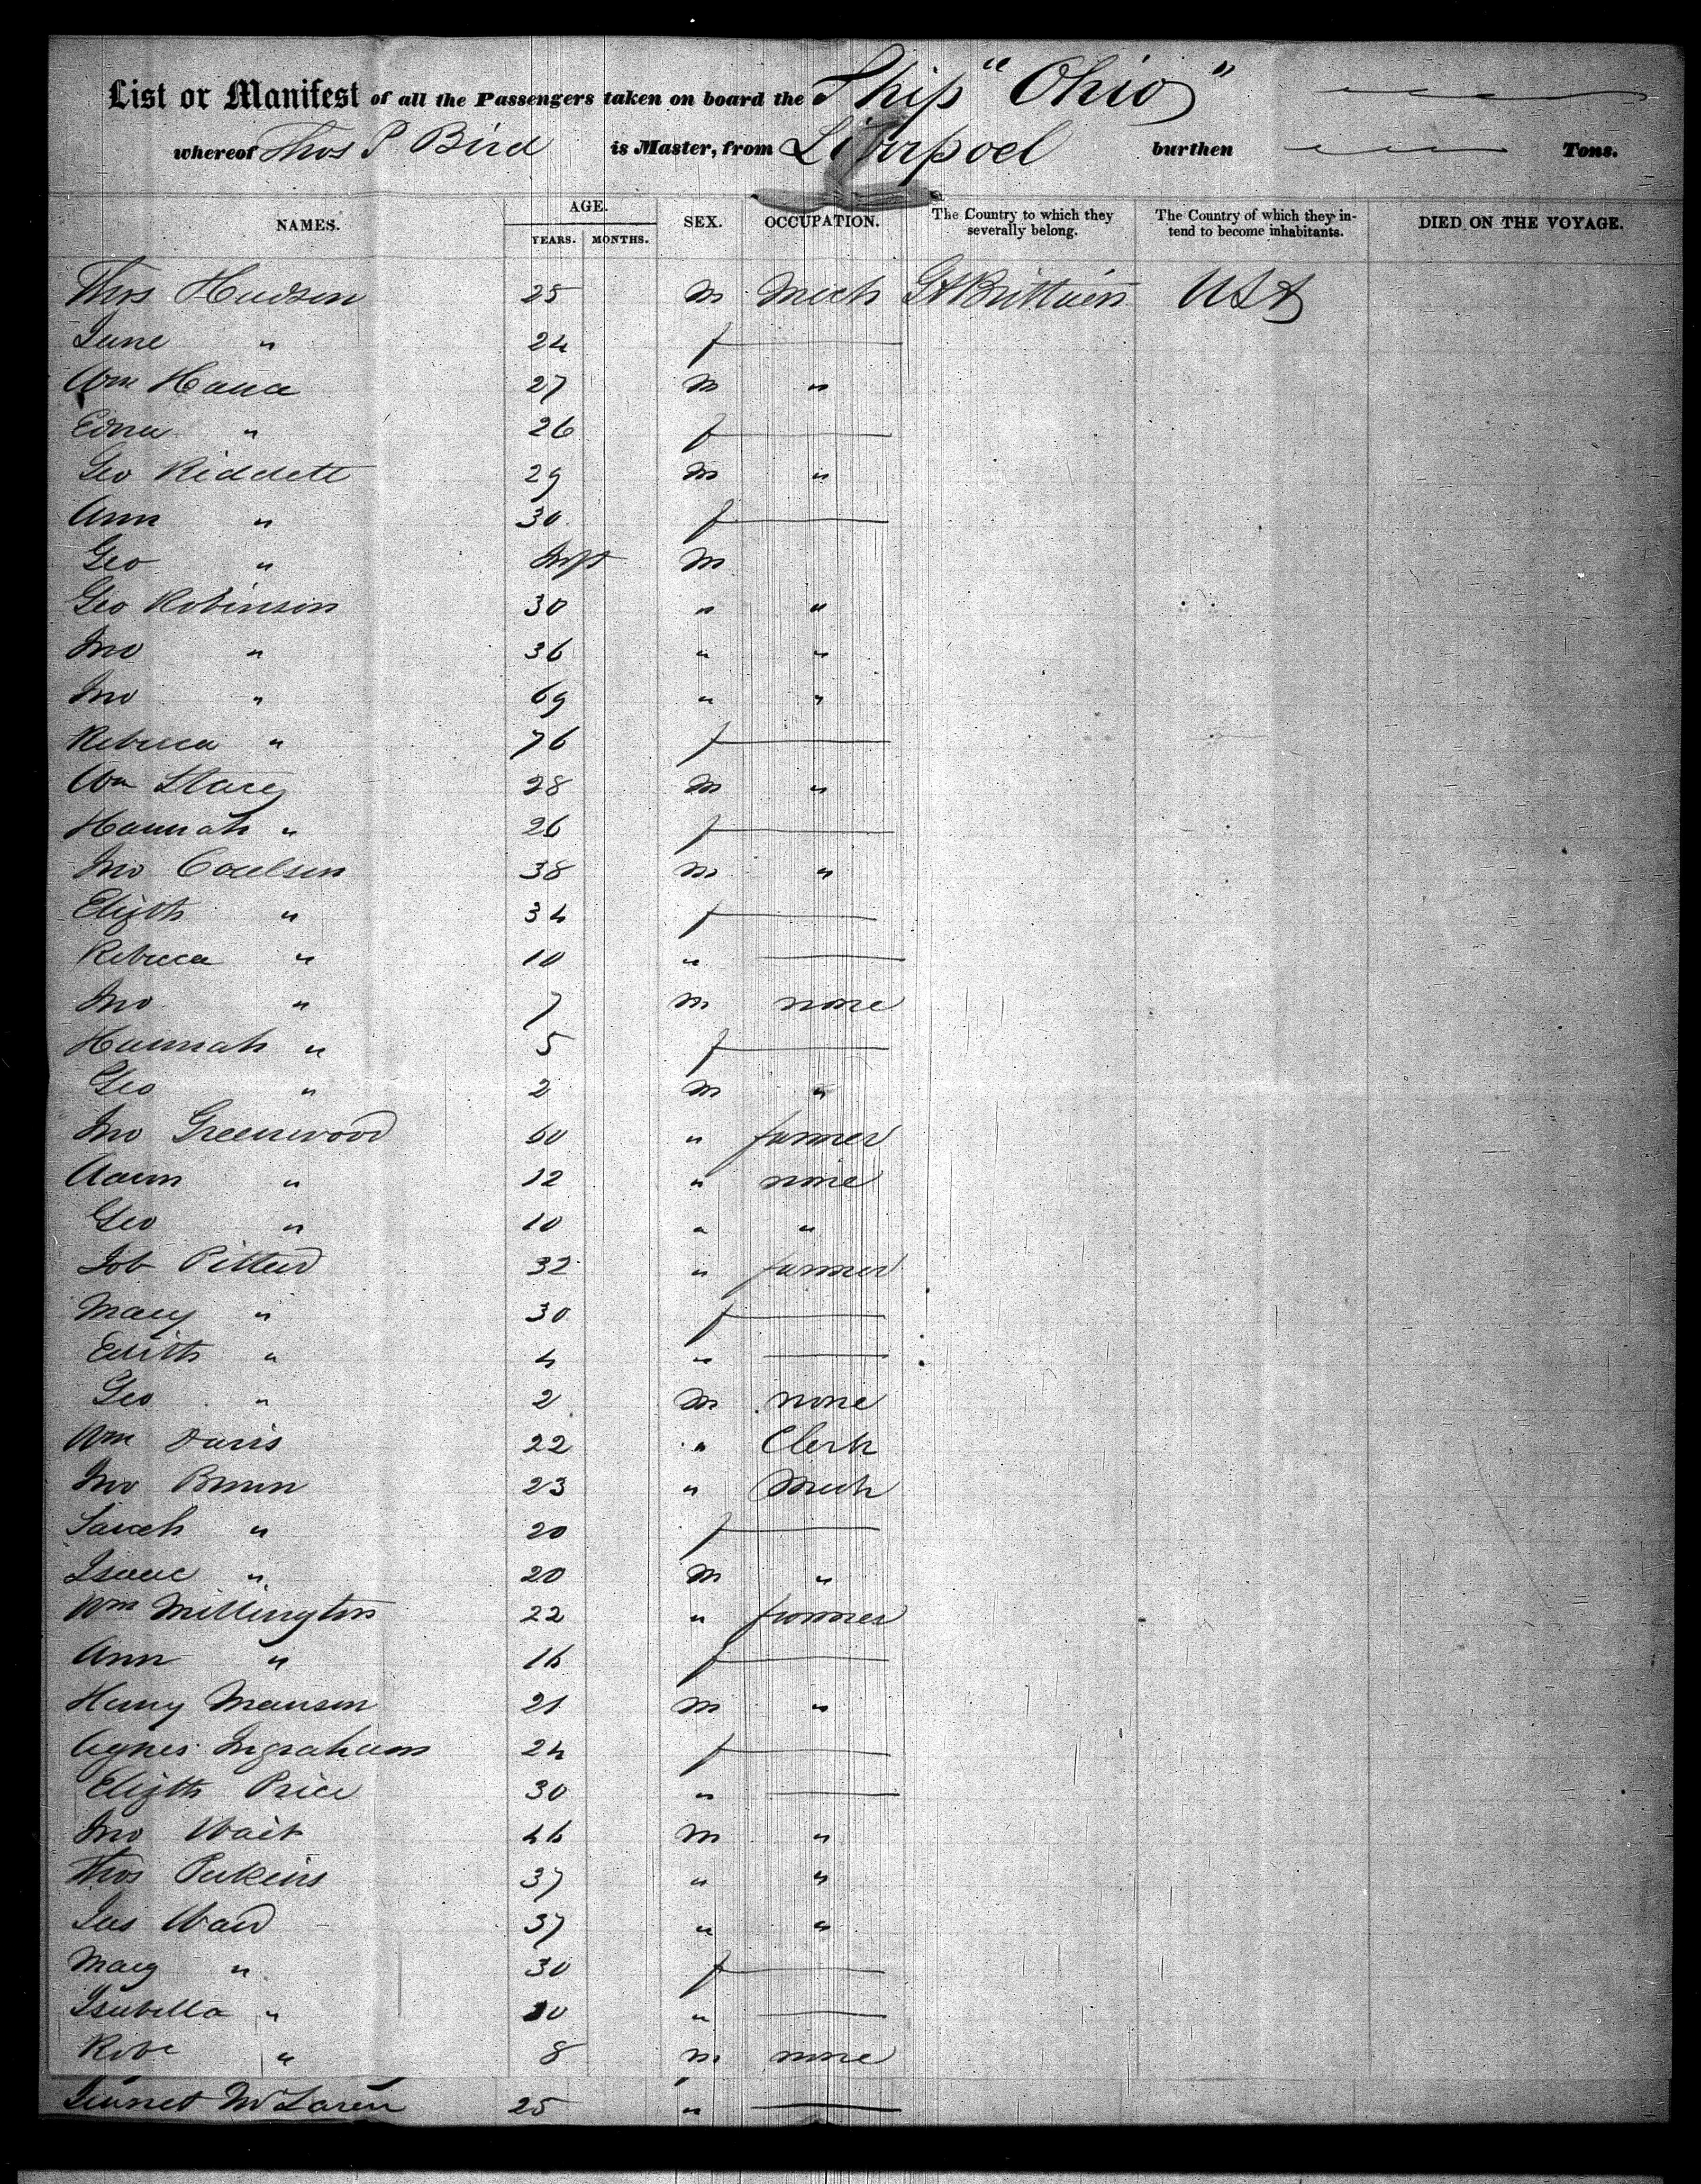 List or Manifest of all the Passengers taken on board the Ship "Ohio"
whereof Thos P Bird is Master, from Liverpool burthen Tons.
NAMES. AGE. YEARS. MONTHS. SEX. OCCUPATION. The Country to which they severally belong. The Country of which they intend to become inhabitants. DIED ON THE VOYAGE.
Thos Hudson 25 m Mech Gt Brittain USA
Jane " 24 f
Wm 27 m "
Edna " 26 f
Geo Riddett 29 m "
Ann " 30 f
Geo " Inft m
Geo Robinson 30 " "
Jno " 36 " "
Jno " 69 " "
Rebecca " 76 f
Wm Stacey 28 m "
Hannah " 26 f
Jno Coulson 38 m "
Elizth " 34 f
Rebecca " 10 "
Jno " 7 m none
Hannah " 5 f
Geo " 2 m "
Jno Greenwood 60 " farmer
Aaron " 12 " none
Geo " 10 " "
Job 32 " farmer
Mary " 30 f
Edith " 4 "
Geo " 2 m none
Wm Davis 22 " Clerk
Jno Brown 23 " Mech
Sarah " 20 f
Isaac " 20 m "
Wm Millington 22 " farmer
Ann " 16 f
Henry Manson 21 m "
Agnes Ingraham 24 f
Elizth Price 30 "
Jno Wait 46 m "
Thos Perkins 37 " "
Jas Ward 37 " "
Mary " 30 f
Isabella " 10 "
Robt " 8 m none
Jennet McLaren 25 "